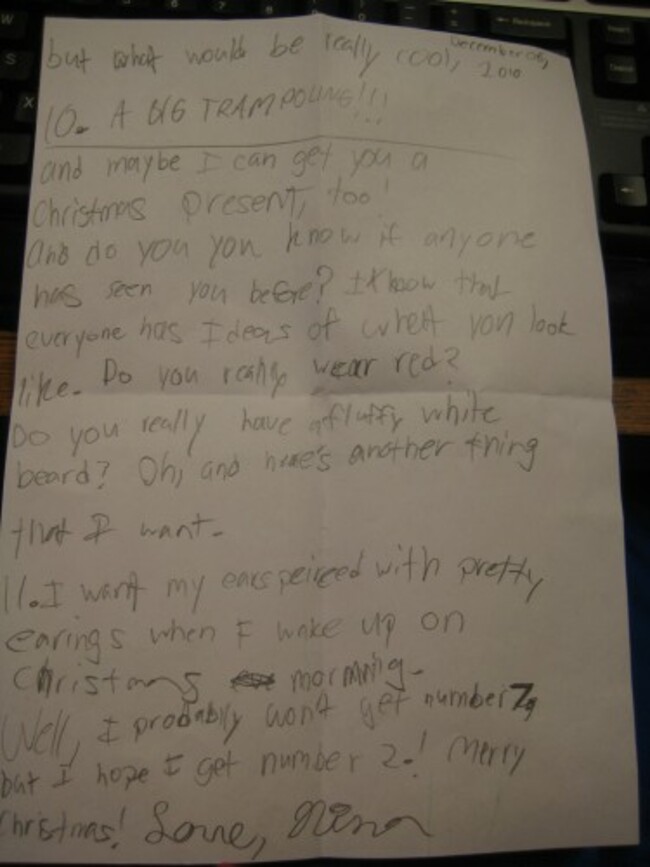 but what would be really cool,
December 06,
2010
10. A BIG TRAMPOLINE!!!
and maybe I can get you a
Christmas present, too!
And do you you know if anyone
has seen you before? I know that
everyone has Ideas of what you look
like. Do you really wear red?
Do you really have a fluffy white
beard? Oh, and here's another thing
that I want.
11. I want my ears peirced with pretty
earings when I wake up on
Christmas mornning.
Well, I probably won't get number 7,
but I hope I get number 2.! Merry
Christmas! Love, Nena